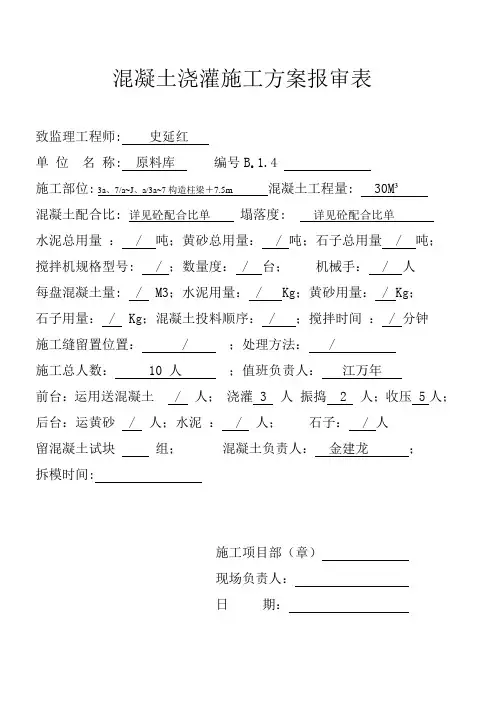 混凝土浇灌施工方案报审表
致监理工程师: 史延红
单 位 名 称: 原料库 编号B.1.4
施工部位: 3a、7/a~J、a/3a~7构造柱梁+7.5m 混凝土工程量: 30M³
混凝土配合比: 详见砼配合比单 塌落度: 详见砼配合比单
水泥总用量 : / 吨; 黄砂总用量: / 吨; 石子总用量 / 吨;
搅拌机规格型号: / ; 数量度: / 台; 机械手: / 人
每盘混凝土量: / M3; 水泥用量: / Kg; 黄砂用量: / Kg;
石子用量: / Kg; 混凝土投料顺序: / ; 搅拌时间 : / 分钟
施工缝留置位置: / ; 处理方法: /
施工总人数: 10 人 ; 值班负责人: 江万年
前台: 运用送混凝土 / 人; 浇灌 3 人 振捣 2 人; 收压 5人;
后台: 运黄砂 / 人; 水泥 : / 人; 石子: / 人
留混凝土试块 组; 混凝土负责人: 金建龙 ;
拆模时间:
施工项目部（章）
现场负责人:
日 期: